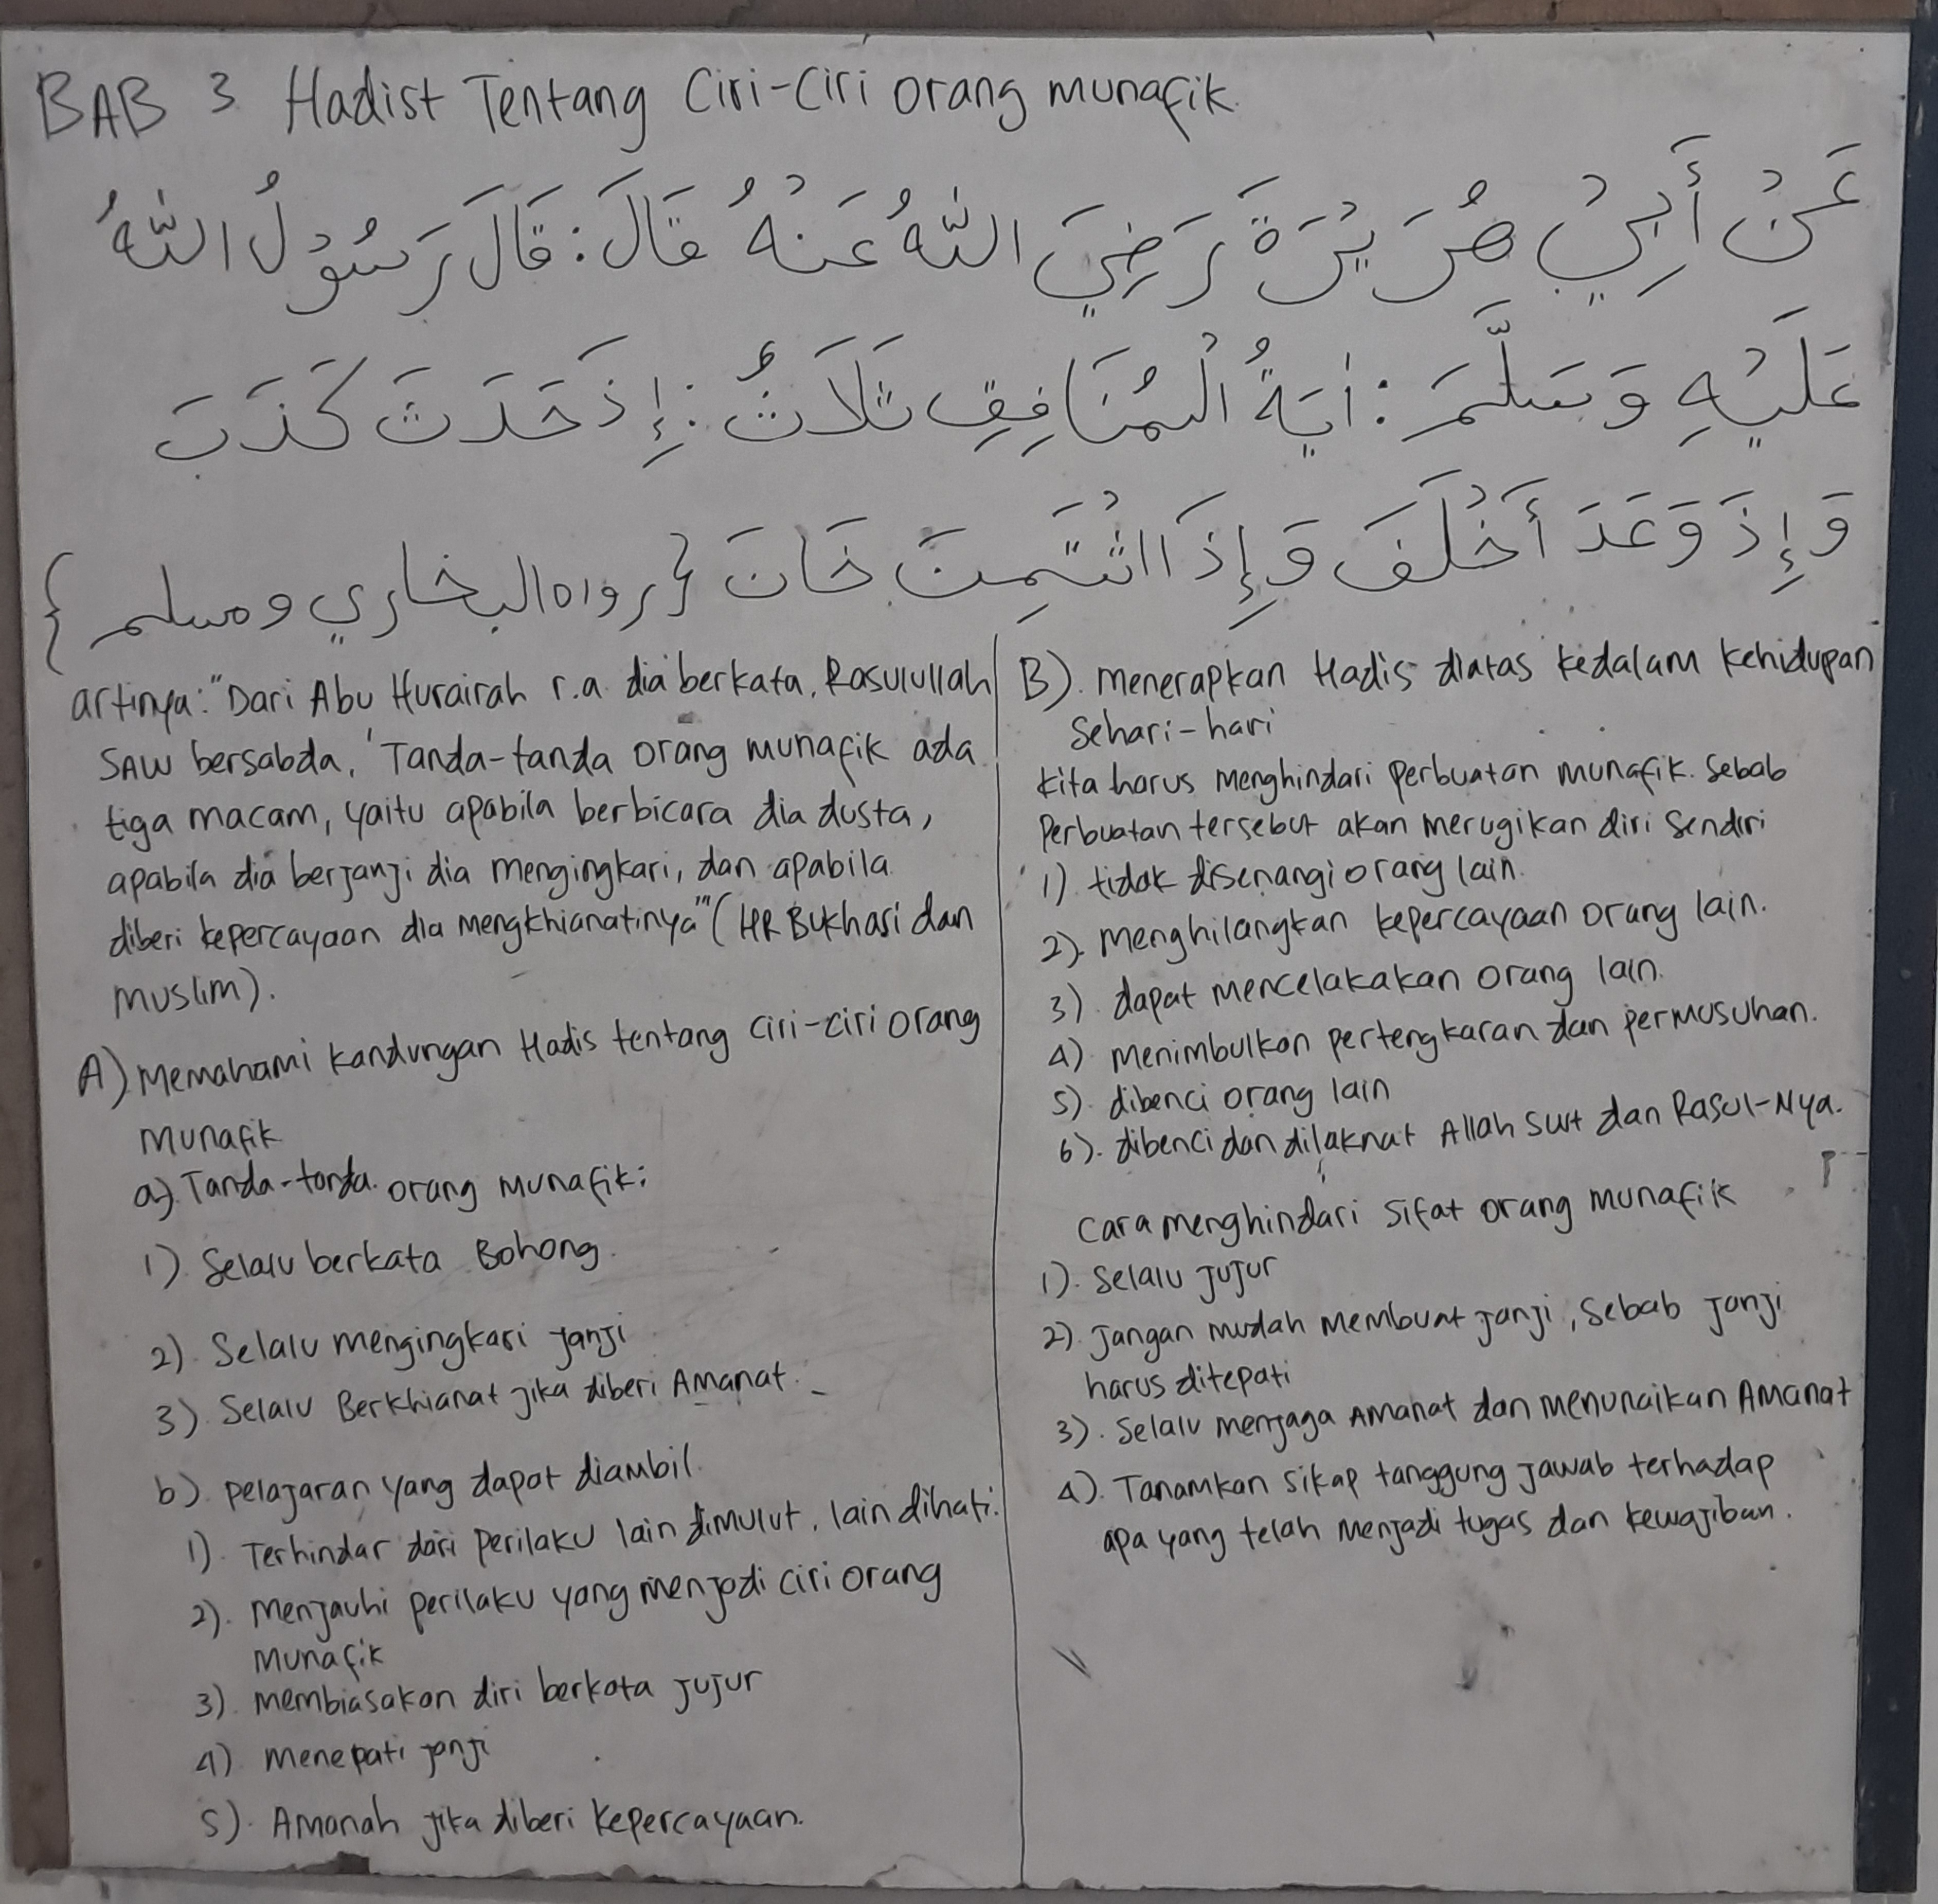 BAB 3 Hadist Tentang Ciri-Ciri orang munafik.
عَنْ أَبِيْ هُرَيْرَةَ رَضِيَ اللّٰهُ عَنْهُ قَالَ : قَالَ رَسُوْلُ اللّٰهُ
عَلَيْهِ وَسَلَّمَ : اٰيَةُ الْمُنَافِقِ ثَلَاثٌ : إِذَ حَدَثَ كَذَبَ
وَإِذَ وَعَدَ أَخْلَفَ وَإِذَا ائْتَمِنَ خَانَ {رواه البخاري ومسلم}
artinya: "Dari Abu Hurairah r.a. dia berkata, Rasulullah
SAW bersabda, 'Tanda-tanda orang munafik ada
tiga macam, yaitu apabila berbicara dia dusta,
apabila dia berjanji dia mengingkari, dan apabila
diberi kepercayaan dia mengkhianatinya'" (HR Bukhari dan
Muslim).
A) Memahami kandungan Hadis tentang ciri-ciri orang
Munafik
a) Tanda-tanda orang munafik:
1) Selalu berkata Bohong.
2) Selalu mengingkari janji
3) Selalu Berkhianat jika diberi Amanat.
b) pelajaran yang dapat diambil.
1) Terhindar dari perilaku lain dimulut, lain dihati.
2) Menjauhi perilaku yang menjadi ciri orang
Munafik
3) membiasakan diri berkata jujur
4) menepati janji
5) Amanah jika diberi kepercayaan.
B). menerapkan Hadis diatas kedalam kehidupan
sehari-hari
kita harus menghindari perbuatan munafik. Sebab
Perbuatan tersebut akan merugikan diri sendiri
1) tidak disenangi orang lain.
2). menghilangkan kepercayaan orang lain.
3) dapat mencelakakan orang lain.
4) menimbulkan pertengkaran dan permusuhan.
5) dibenci orang lain
6). dibenci dan dilaknat Allah swt dan Rasul-Nya.
Cara menghindari sifat orang munafik
1). Selalu jujur
2). Jangan mudah membuat janji, Sebab janji
harus ditepati
3). Selalu menjaga Amanat dan menunaikan Amanat
4). Tanamkan sikap tanggung jawab terhadap
apa yang telah menjadi tugas dan kewajiban.